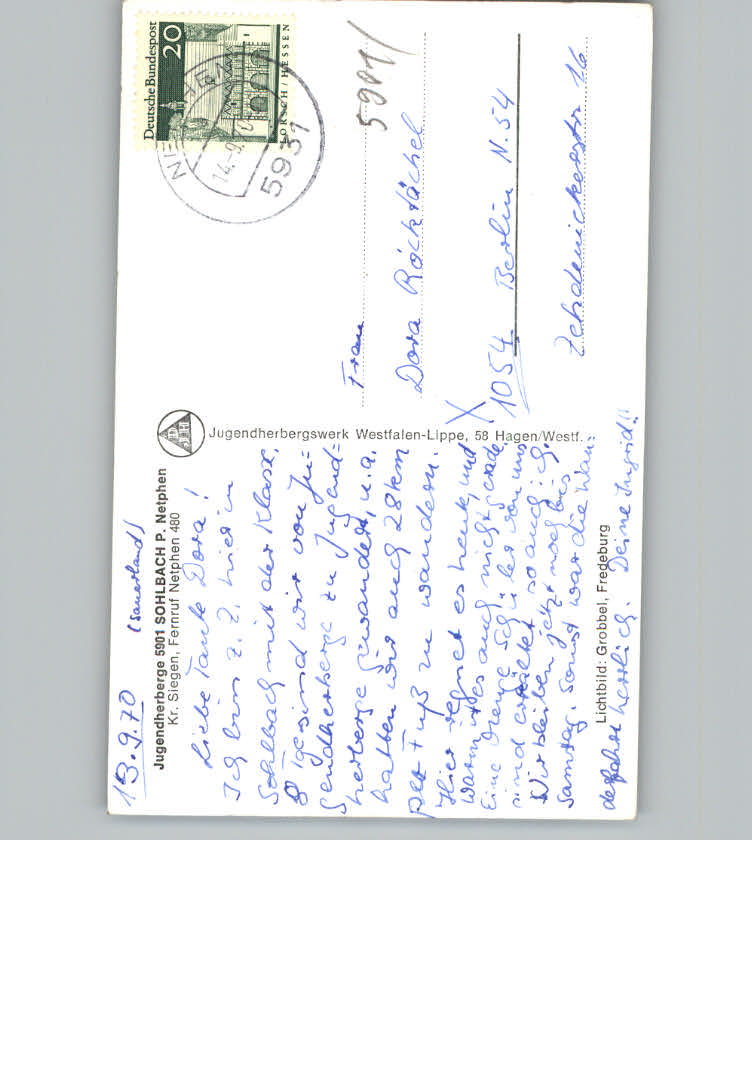 13.9.70 (Sauerland)
Jugendherberge 5901 SOHLBACH P. Netphen
Kr. Siegen, Fernruf Netphen 480
Liebe Tante Dora!
Ich bin z. Z. hier in
Sohlbach mit der Klasse,
8 Tge sind wir von Ju-
gendherberge zu Jugend-
herberge gewandert, u.a.
hatten wir auch 28 km
per Fuß zu wandern.
Hier regnet es heute, und
warm ist es auch nicht gerade.
Eine Menge Schüler von uns
sind erkältet, so auch ich.
Wir bleiben jetzt noch bis
Samstag. Sonst war die Wan-
derfahrt herrlich. Deine Ingrid!!
Lichtbild: Grobbel, Fredeburg
DJH
Jugendherbergswerk Westfalen-Lippe, 58 Hagen/Westf.
Deutsche Bundespost
20
LORSCH/HESSEN
14.-9.
5931
5901/
Frau
Dora Röckstächel
X 1054 Berlin N. 54
Zehdenickerstr 16